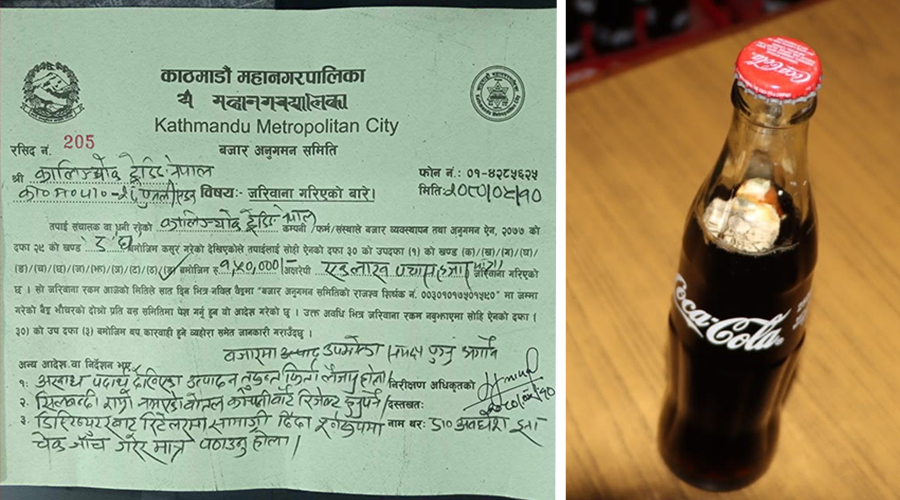 काठमाडौं महानगरपालिका
Kathmandu Metropolitan City
रसिद नं. 205
बजार अनुगमन समिति
श्री कालिञ्चोक ट्रेडिङ नेपाल
फोन नं.: ०१-४२८५६२५
का० म० पा० विषय: जरिवाना गरिएको बारे।
मिति:
तपाई संचालक वा धनी रहेको कालिञ्चोक ट्रेडिङ नेपाल कम्पनी/फर्म/संस्थाले बजार व्यवस्थापन तथा अनुगमन ऐन, २०७७ को
दफा २९ को खण्ड बमोजिम कसुर गरेको देखिएकोले तपाईलाई सोही ऐनको दफा ३० को उपदफा (१) को खण्ड (क)/(ख)/(ग)/(घ)/
(ङ)/(च)/(छ)/(ज)/(झ)/(ञ)/(ट)/(ठ)/(ड) बमोजिम रु. १,५०,०००/- अक्षरेपी एक लाख पचास हजार मात्र। जरिवाना गरिएको
छ । सो जरिवाना रकम आजको मितिले सात दिन भित्र नबिल बैङ्कमा "बजार अनुगमन समितिको राजस्व शिर्षक नं. ००३०१०१७५०१५८०" मा जम्मा
गरेको बैङ्क भौचरको दोश्रो प्रति यस समितिमा पेश गर्नु हुन यो आदेश गरेको छु । उक्त अवधि भित्र जरिवाना रकम नबुझाएमा सोहि ऐनको दफा (
३०) को उप दफा (३) बमोजिम थप कारवाही हुने व्यहोरा समेत जानकारी गराउँदछु ।
बजारमा उत्पाद उपभोक्ता
अन्य आदेश वा निर्देशन भए:
१. अखाद्य पदार्थ देखिएका उत्पादन तुरुन्त फिर्ता लैजानु होला। निरीक्षण अधिकृतको
२. बोतल रिजेक्ट हुनुपर्ने दस्तखत:
३. डिस्ट्रिब्युटरबाट रिटेलरमा सामाग्री दिंदा नाम थर: डा० अवधेश झा
चेक जाँच गरेर मात्र पठाउनु होला।
Coca-Cola
Coca-Cola